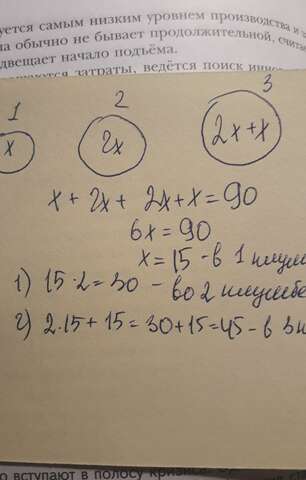 уется самым низким уровнем производства и
ла обычно не бывает продолжительной, счита
двещает начало подъёма.
затраты, ведётся поиск
1 2 3
x 2x 2x+x
x + 2x + 2x+x = 90
6x = 90
x = 15 - в 1 клумбе
1) 15·2=30 - во 2 клумбе
2) 2·15+15=30+15=45 - в 3
о вступают в полосу кризиса.